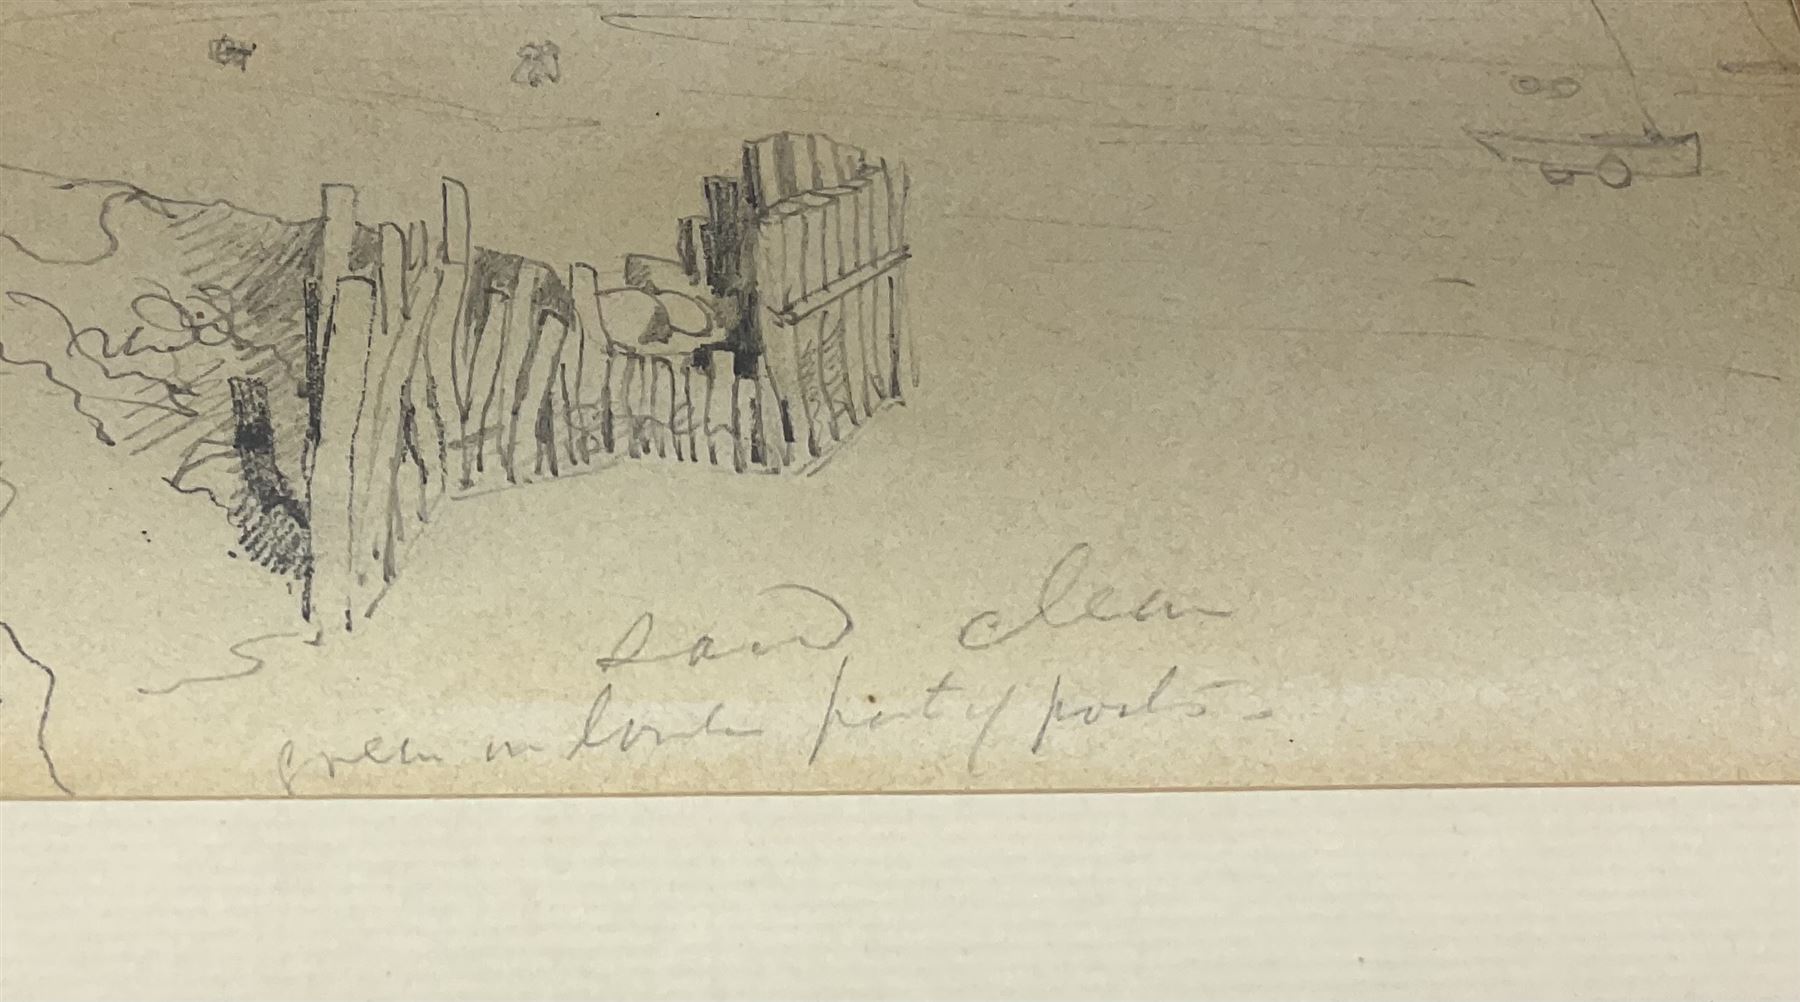 sand clean
green on lower part of posts -